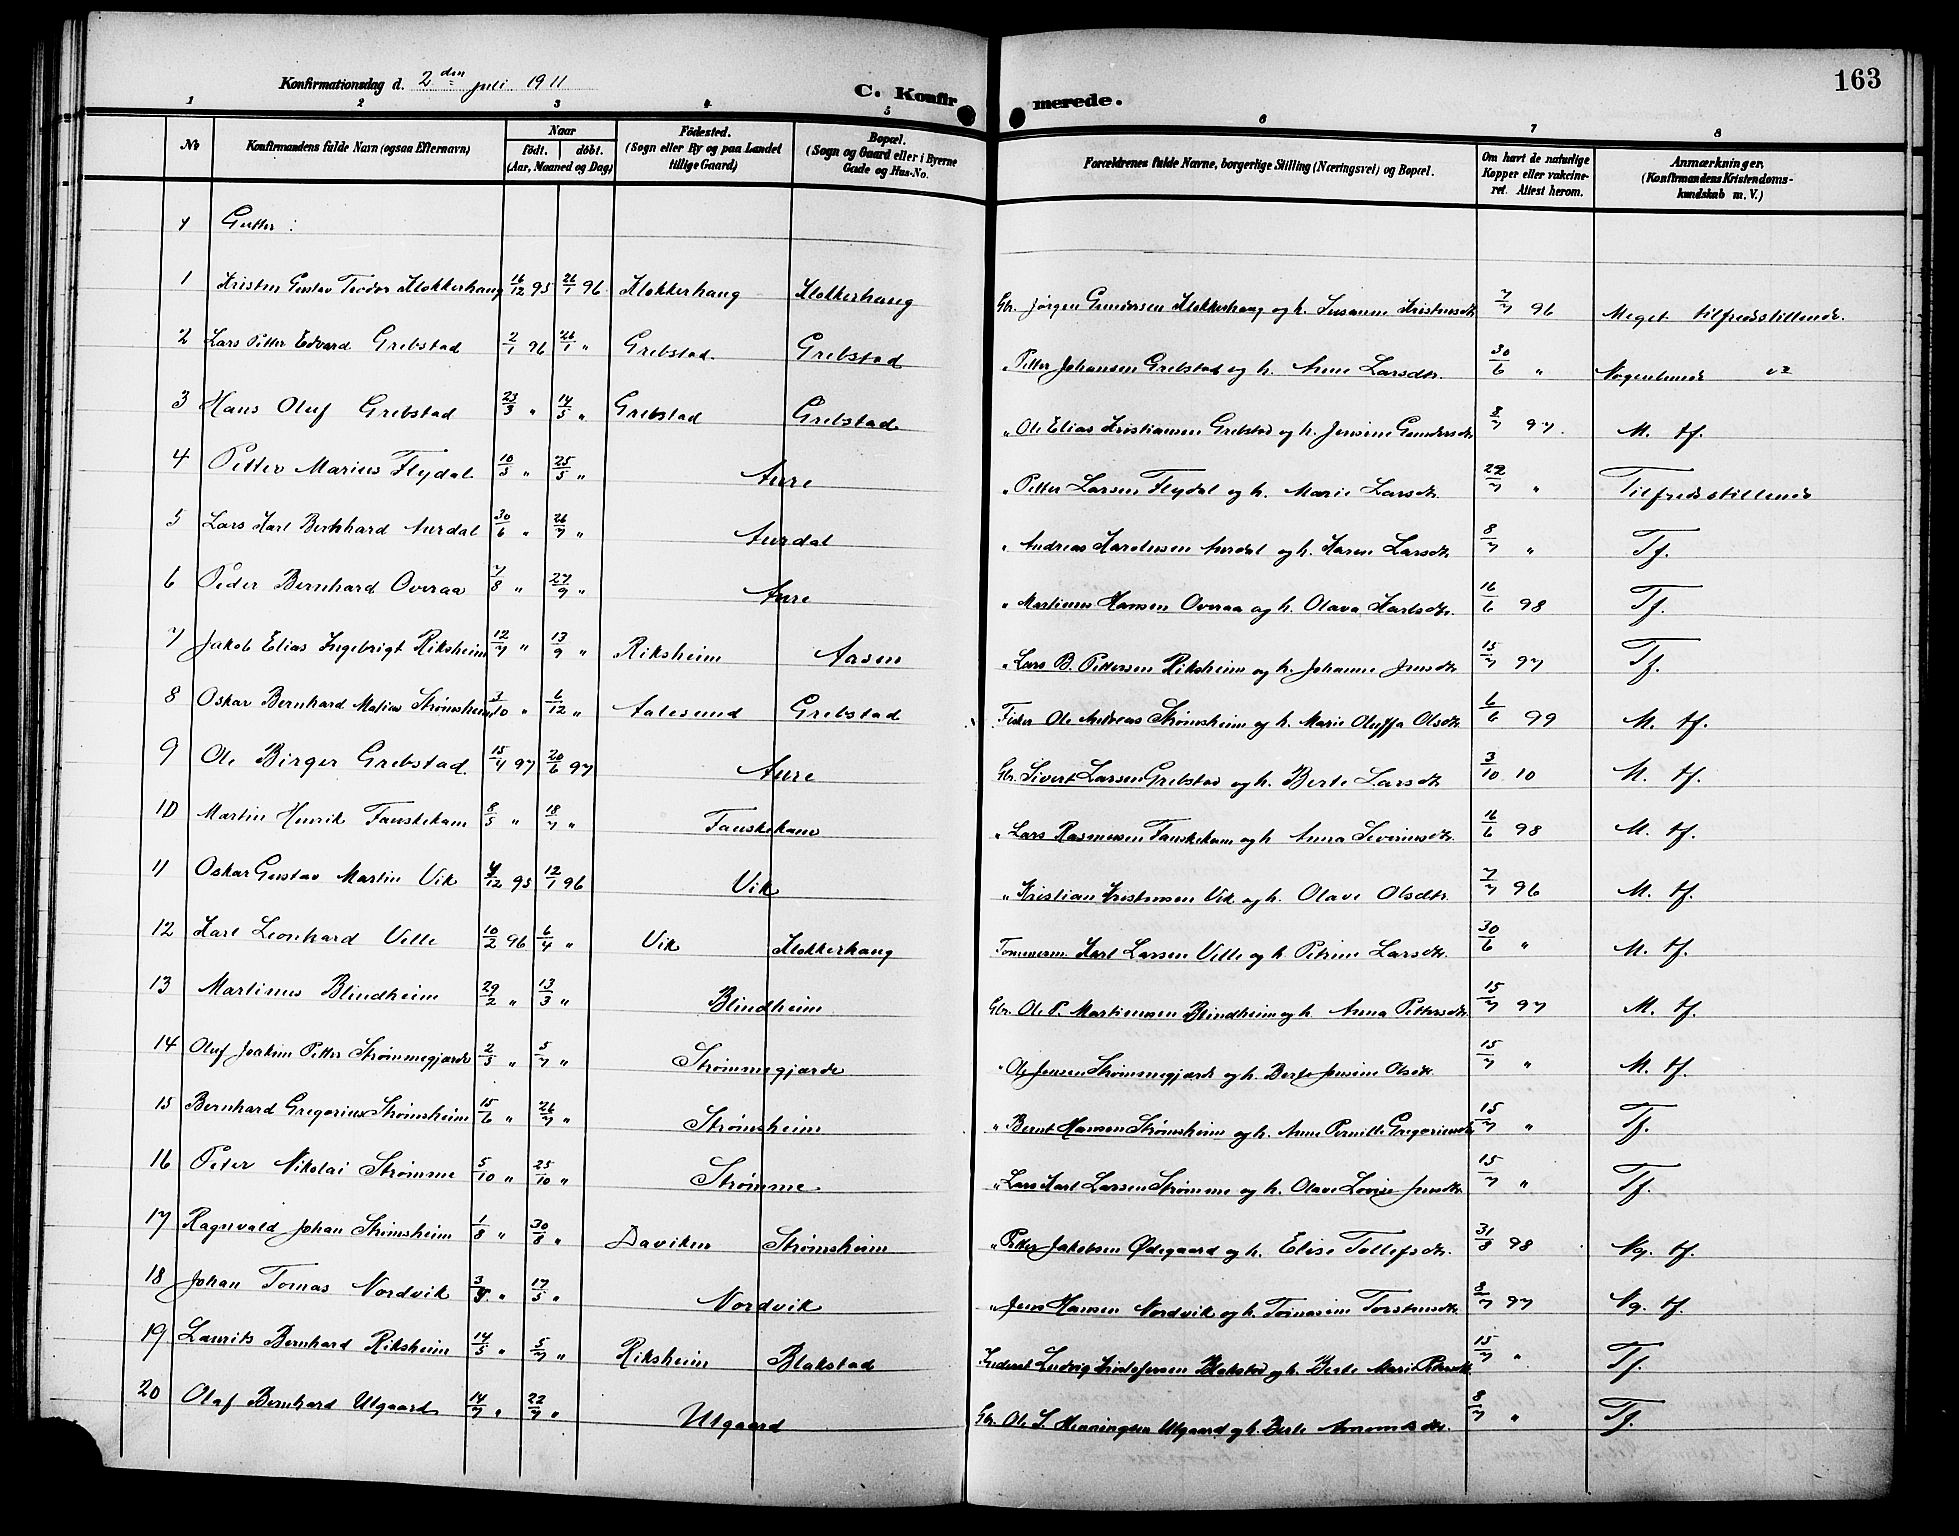 163
Konfirmationsdag d. 2den juli 1911
C. Konfirmerede.
1 2 3 4 5 6 7 8
No
Konfirmandens fulde Navn (ogsaa Efternavn)
Naar födt. döbt. (Aar, Maaned og Dag)
Födested. (Sogn eller By og paa Landet tillige Gaard)
Bopæl. (Sogn og Gaard eller i Byerne Gade og Hus-No.
Forældrenes fulde Navne, borgerlige Stilling (Næringsvei) og Bopæl.
Om havt de naturlige Kopper eller vakcineret. Attest herom.
Anmærkninger. (Konfirmandens Kristendomskundskab m. V.)
Gutter:
1 Kristen Gustav Teodor Klokkerhaug 16/12 95 26/1 96 Klokkerhaug Klokkerhaug Gbr. Jørgen Gundersen Klokkerhaug og h. Susanne Kristensdtr 7/7 96 Meget tilfredsstillende.
2 Lars Petter Edvard Grebstad 2/1 96 26/1 " Grebstad Grebstad " Petter Johansen Grebstad og h. Anne Larsdtr. 30/6 " Nogenlunde
3 Hans Oluf Grebstad 23/3 " 14/5 " Grebstad Grebstad " Ole Elias Kristiansen Grebstad og h. Jensine Gundersdtr 8/7 97. M. tf.
4 Petter Marius Flydal 10/5 " 25/5 " Aure " Petter Larsen Flydal og h. Marie Larsdtr 22/7 " Tilfredsstillende
5 Lars Karl Bernhard Aurdal 30/6 " 26/7 " Aurdal " Andreas Karolusen Aurdal og h. Karen Larsdtr. 8/7 " Tf.
6 Peder Bernhard Overaa 7/8 " 27/9 " Aure " Martinus Hansen Overaa og h. Olava Karlsdtr. 16/6 98 Tf.
7 Jakob Elias Ingebrigt Riksheim 12/7 " 13/9 " Riksheim Aasen " Lars B. Pettersen Riksheim og h. Johanne Jensdtr 15/7 97 Tf.
8 Oskar Bernhard Matias Strømsheim 3/10 " 6/12 " Aalesund Grebstad Fisker Ole Andreas Strømsheim og h. Marie Oluffa Olsdtr 6/6 99 M. tf.
9 Ole Birger Grebstad. 15/4 97 20/6 97 Aure Gbr. Sivert Larsen Grebstad og h. Berte Larsdtr 3/10 10 M. tf.
10 Martin Henrik Fauskekam 8/5 " 18/7 " Fauskekam " Lars Rasmussen Fauskekam og h. Anna Severinsdtr. 16/6 98 M. tf.
11 Oskar Gustav Martin Vik 4/12 95 12/1 96 Vik " Kristian Kristensen Vik og h. Olave Olsdtr. 7/7 96 M. tf.
12 Karl Leonhard Velle 10/2 96 6/4 " Vik Klokkerhaug Tømmerm. Karl Larsen Velle og h. Petrine Larsdtr. 30/6 " M. tf.
13 Martinus Blindheim 29/2 " 13/3 " Blindheim Gbr. Ole P. Martinussen Blindheim og h. Anna Pettersdtr 15/7 97 M. tf.
14 Oluf Joakim Petter Strømmegjærde 2/5 " 5/7 " Strømmegjærde " Ole Jensen Strømmegjærde og h. Berte Jensine Olsdtr 15/7 " M. tf.
15 Bernhard Gregorius Strømsheim 15/6 " 26/7 " Strømsheim " Bernt Hansen Strømsheim og h. Anne Pernille Gregoriusdtr 15/7 " Tf.
16 Peter Nikolai Strømme 5/10 " 25/10 " Strømme " Lars Karl Larsen Strømme og h. Olave Lovise Jensdtr. 15/7 " Tf.
17 Ragnvald Johan Strømsheim 1/8 " 30/8 " Daviken Strømsheim " Petter Jakobsen Ødegaard og h. Elise Tollefsdtr. 31/8 98 Ng. tf.
18 Johan Tomas Nordvik " 17/5 " Nordvik " Jens Hansen Nordvik og h. Tomasine Torstensdtr 8/7 97 Ng. tf.
19 Laurits Bernhard Riksheim 14/5 " 5/7 " Riksheim Blakstad Inderst Ludvig Kristofersen Blakstad og h. Berte Marie Petersdtr 15/7 " Tf.
20 Olaf Bernhard Utgaard 14/7 " 22/7 " Utgaard Gbr. Ole S. Henningsen Utgaard og h. Berte Amundsdtr. 8/7 " Tf.